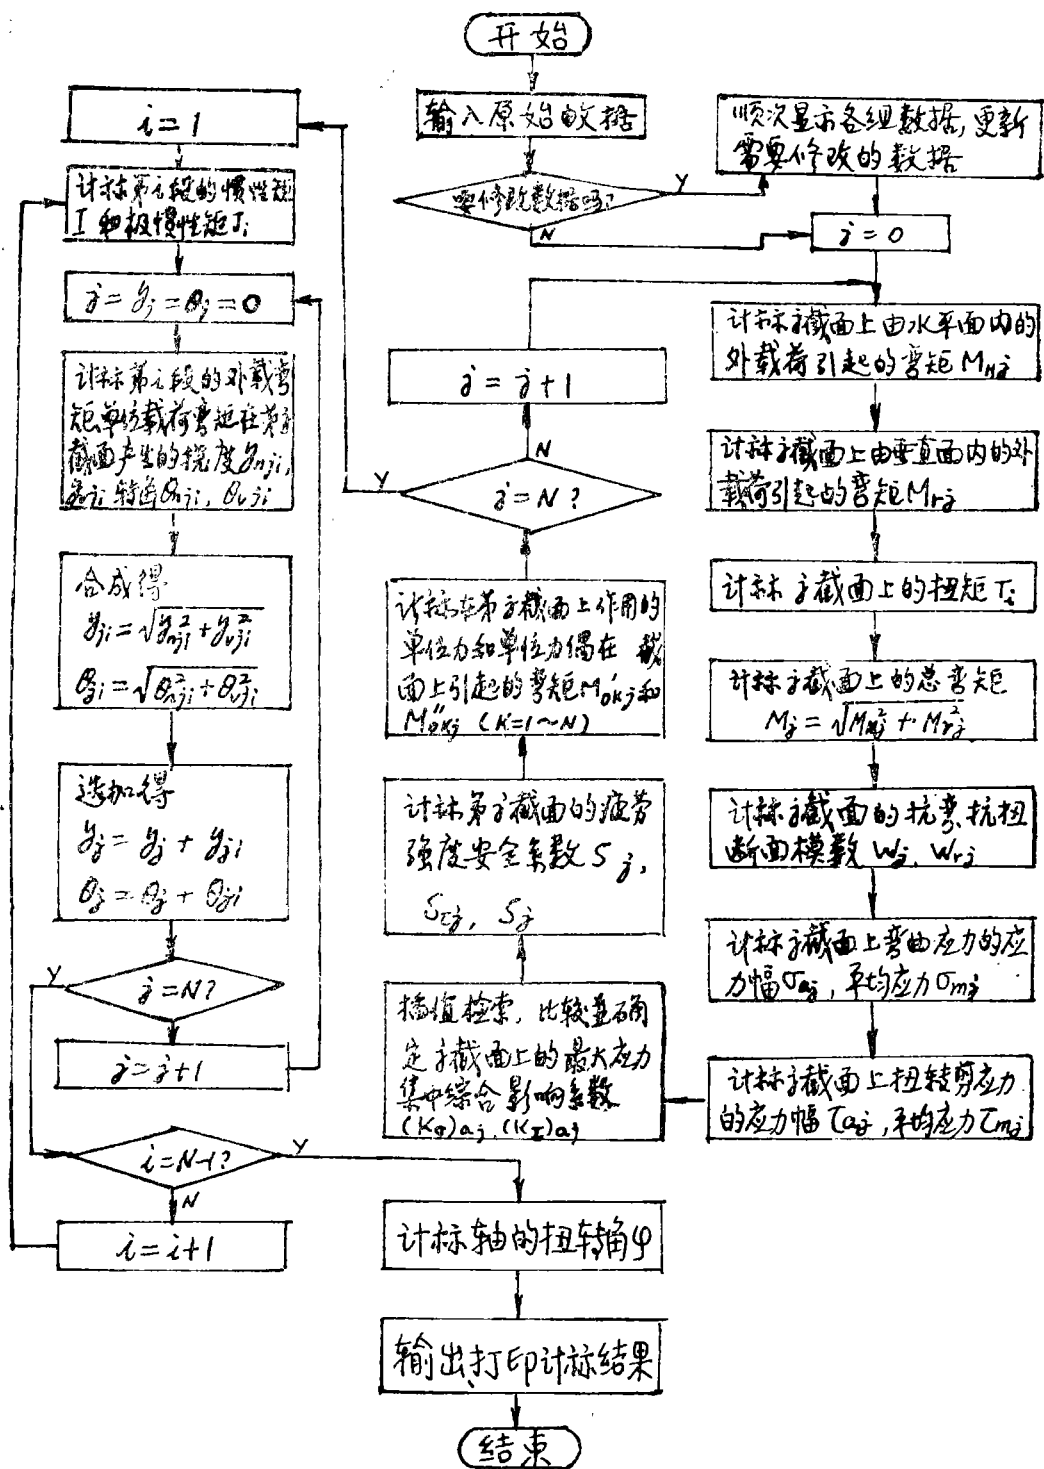 开始
输入原始数据
要修改数据吗?
Y
N
顺次显示各组数据,更新
需要修改的数据
j=0
计标j截面上由水平面内的
外载荷引起的弯矩MHj
计标j截面上由垂直面内的外
载荷引起的弯矩Mrj
计标j截面上的扭矩Ti
计标j截面上的总弯矩
Mj=√MHj²+Mrj²
计标j截面的抗弯抗扭
断面模数Wj, Wrj
计标j截面上弯曲应力的应
力幅σaj,平均应力σmj
计标j截面上扭转剪应力
的应力幅τaj,平均应力τmj
插值检索,比较並确
定j截面上的最大应力
集中综合影响系数
(Kσ)aj,(Kτ)aj
计标第j截面的疲劳
强度安全系数Sj,
Sτj, Sj
计标在第j截面上作用的
单位力和单位力偶在 截
面上引起的弯矩M'okj和
M"okj (K=1~N)
j=N?
Y
N
j=j+1
i=1
计标第i段的惯性矩
I和极惯性矩Ji
j=yj=θj=0
计标第i段的外载弯
矩单位载荷弯矩在第j
截面产生的挠度yHji,
yvji转角θHji, θvji
合成得
yji=√yHji²+yvji²
θji=√θHji²+θvji²
迭加得
yj=yj+yji
θj=θj+θji
j=N?
Y
j=j+1
i=N-1?
Y
N
i=i+1
计标轴的扭转角φ
输出打印计标结果
结束